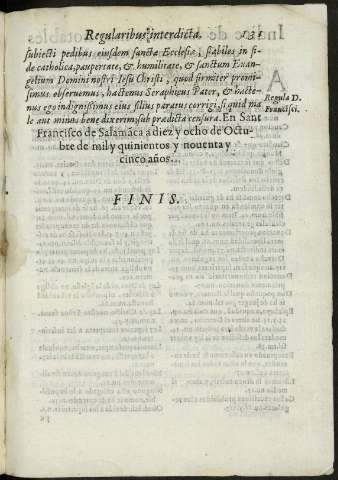 Regularibus interdicta.
subiecti pedibus eiusdem sanctæ Ecclesiæ, stabiles in fi-
de catholica, paupertate, & humilitate, & sanctum Euan-
gelium Domini nostri Iesu Christi, quod firmiter promi-
simus obseruemus, hactenus Seraphicus Pater, & hacte-
nus ego indignissimus eius filius paratus corrigi, si quid ma
le aut minus bene dixerim sub prædicta censura. En Sant
Regula D.
Francisci.
Francisco de Salamãca a diez y ocho de Octu-
bre de mil y quinientos y nouenta y
cinco años.
FINIS.